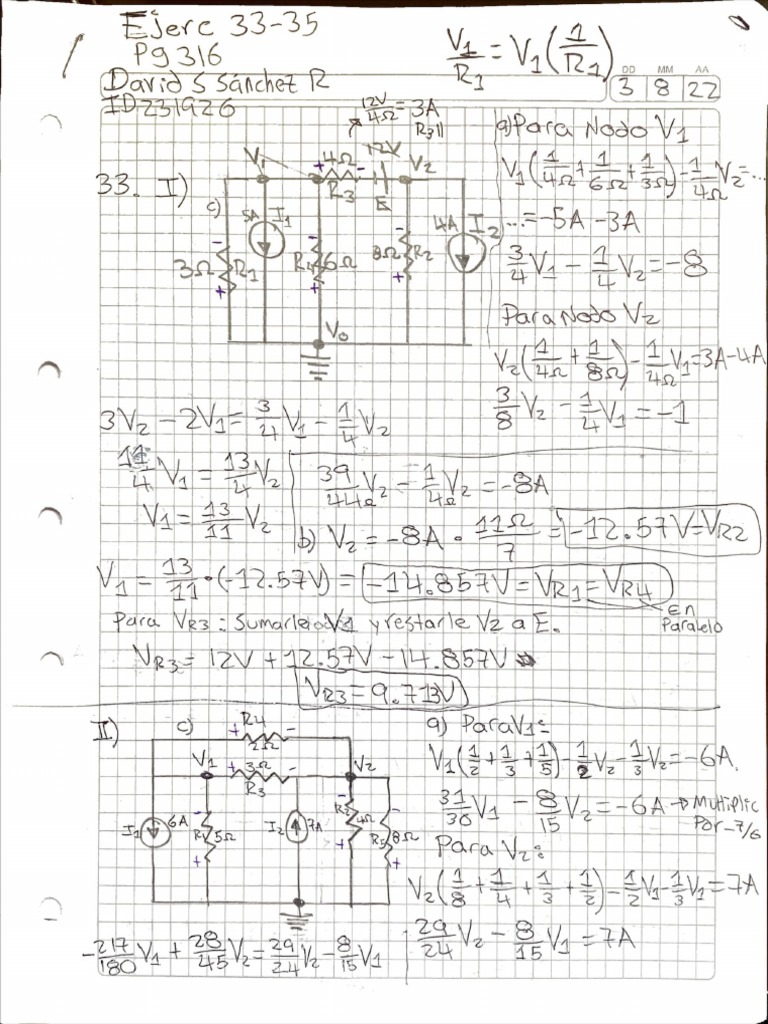 Ejerc 33-35
Pg 316
David S Sánchez R
ID231926
V₁/R₁ = V₁(1/R₁)
DD MM AA
3 8 22
33. I)
c)
12V/4Ω = 3A
R₃||
V₁
+ 4Ω -
R₃
12V
E
V₂
5A I₁
3Ω R₁
R₄ 6Ω
8Ω R₂
4A I₂
V₀
a) Para Nodo V₁
V₁(1/4Ω + 1/6Ω + 1/3Ω) - 1/4Ω V₂ = ...
... = -5A - 3A
3/4 V₁ - 1/4 V₂ = -8
Para Nodo V₂
V₂(1/4Ω + 1/8Ω) - 1/4Ω V₁ = 3A - 4A
3/8 V₂ - 1/4 V₁ = -1
3V₂ - 2V₁ = 3/4 V₁ - 1/4 V₂
11/4 V₁ = 13/4 V₂
V₁ = 13/11 V₂
39/44Ω V₂ - 1/4Ω V₂ = -8A
b) V₂ = -8A · 11Ω/7 = -12.57V = VR2
V₁ = 13/11 · (-12.57V) = -14.857V = VR1 = VR4
En Paralelo
Para VR3: Sumarle V1 y restarle V2 a E.
VR3 = 12V + 12.57V - 14.857V
VR3 = 9.713V
II)
c)
+ R4 -
2Ω
V₁
+ 3Ω -
R₃
V₂
I₁ 6A
R₁ 5Ω
I₂ 7A
R₂ 4Ω
R₅ 8Ω
a) Para V₁:
V₁(1/2 + 1/3 + 1/5) - 1/2 V₂ - 1/3 V₂ = -6A.
31/30 V₁ - 8/15 V₂ = -6A → Multiplic
Por -7/6
Para V₂:
V₂(1/8 + 1/4 + 1/3 + 1/2) - 1/2 V₁ - 1/3 V₁ = 7A
29/24 V₂ - 8/15 V₁ = 7A
-217/180 V₁ + 28/45 V₂ = 29/24 V₂ - 8/15 V₁